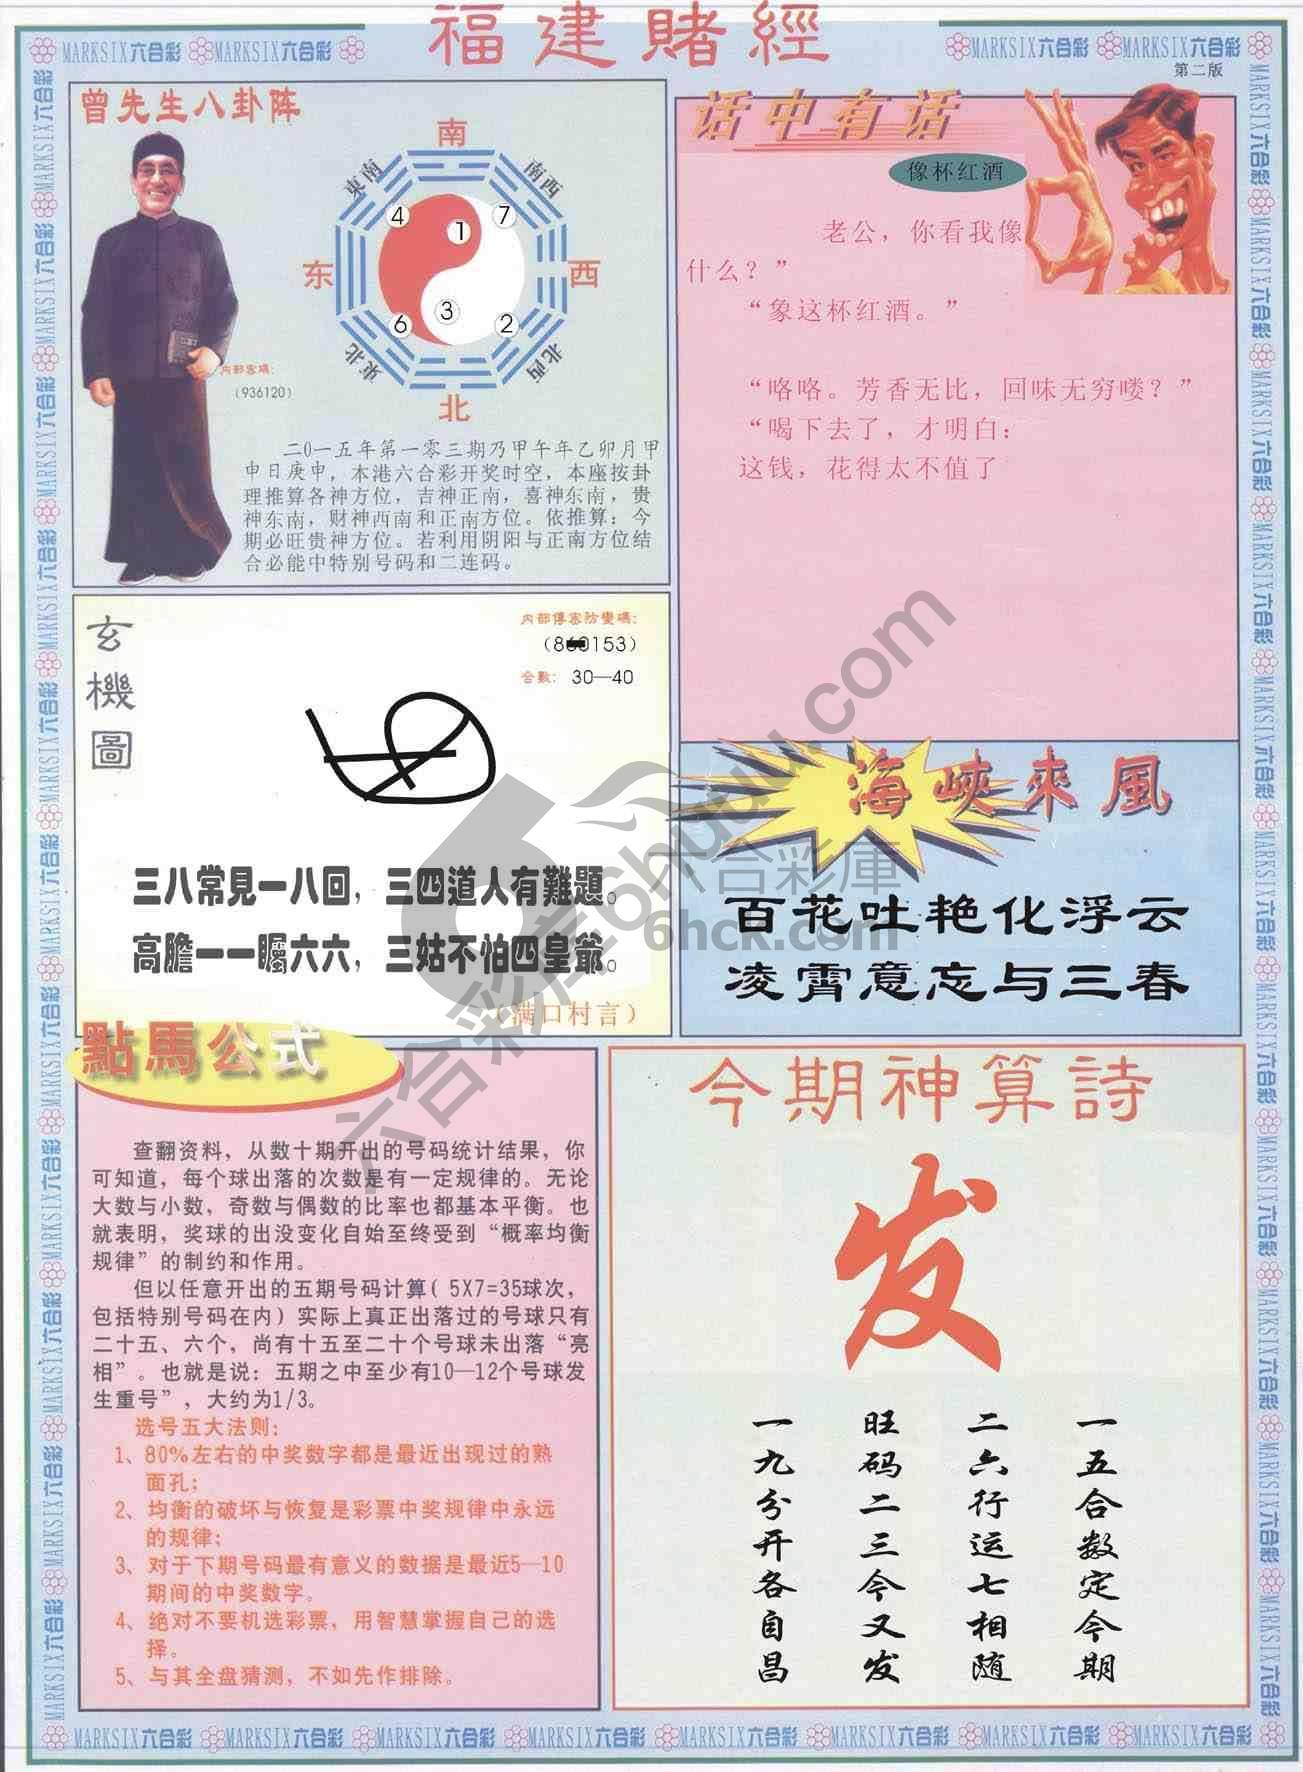 福建賭經
MARKSIX六合彩 MARKSIX六合彩
MARKSIX六合彩 MARKSIX六合彩
第二版
曾先生八卦阵
南
東南
南西
4
1
7
东
西
6
3
2
東北
北西
北
内部密碼:
(936120)
二0一五年第一零三期乃甲午年乙卯月甲
申日庚申，本港六合彩开奖时空，本座按卦
理推算各神方位，吉神正南，喜神东南，贵
神东南，财神西南和正南方位。依推算：今
期必旺贵神方位。若利用阴阳与正南方位结
合必能中特别号码和二连码。
话中有话
像杯红酒
老公，你看我像
什么？”
“象这杯红酒。”
“咯咯。芳香无比，回味无穷喽？”
“喝下去了，才明白：
这钱，花得太不值了
玄機圖
内部傳密防變碼:
合數: 30—40
三八常見一八回，三四道人有難題。
高膽一一矚六六，三姑不怕四皇爺。
（满口村言）
海峽來風
百花吐艳化浮云
凌霄意忘与三春
點馬公式
查翻资料，从数十期开出的号码统计结果，你
可知道，每个球出落的次数是有一定规律的。无论
大数与小数，奇数与偶数的比率也都基本平衡。也
就表明，奖球的出没变化自始至终受到“概率均衡
规律”的制约和作用。
但以任意开出的五期号码计算( 5X7=35球次，
包括特别号码在内）实际上真正出落过的号球只有
二十五、六个，尚有十五至二十个号球未出落“亮
相”。也就是说：五期之中至少有10—12个号球发
生重号”，大约为1/3。
选号五大法则：
1、80%左右的中奖数字都是最近出现过的熟
面孔；
2、均衡的破坏与恢复是彩票中奖规律中永远
的规律；
3、对于下期号码最有意义的数据是最近5—10
期间的中奖数字。
4、绝对不要机选彩票，用智慧掌握自己的选
择。
5、与其全盘猜测，不如先作排除。
今期神算詩
发
一五合数定今期
二六行运七相随
旺码二三今又发
一九分开各自昌
六合彩库6htuku.com
六合彩庫
6hck.com
MARKSIX六合彩 MARKSIX六合彩 MARKSIX六合彩 MARKSIX六合彩 MARKSIX六合彩 MARKSIX六合彩 MARKSIX六合彩 MARKSIX六合彩